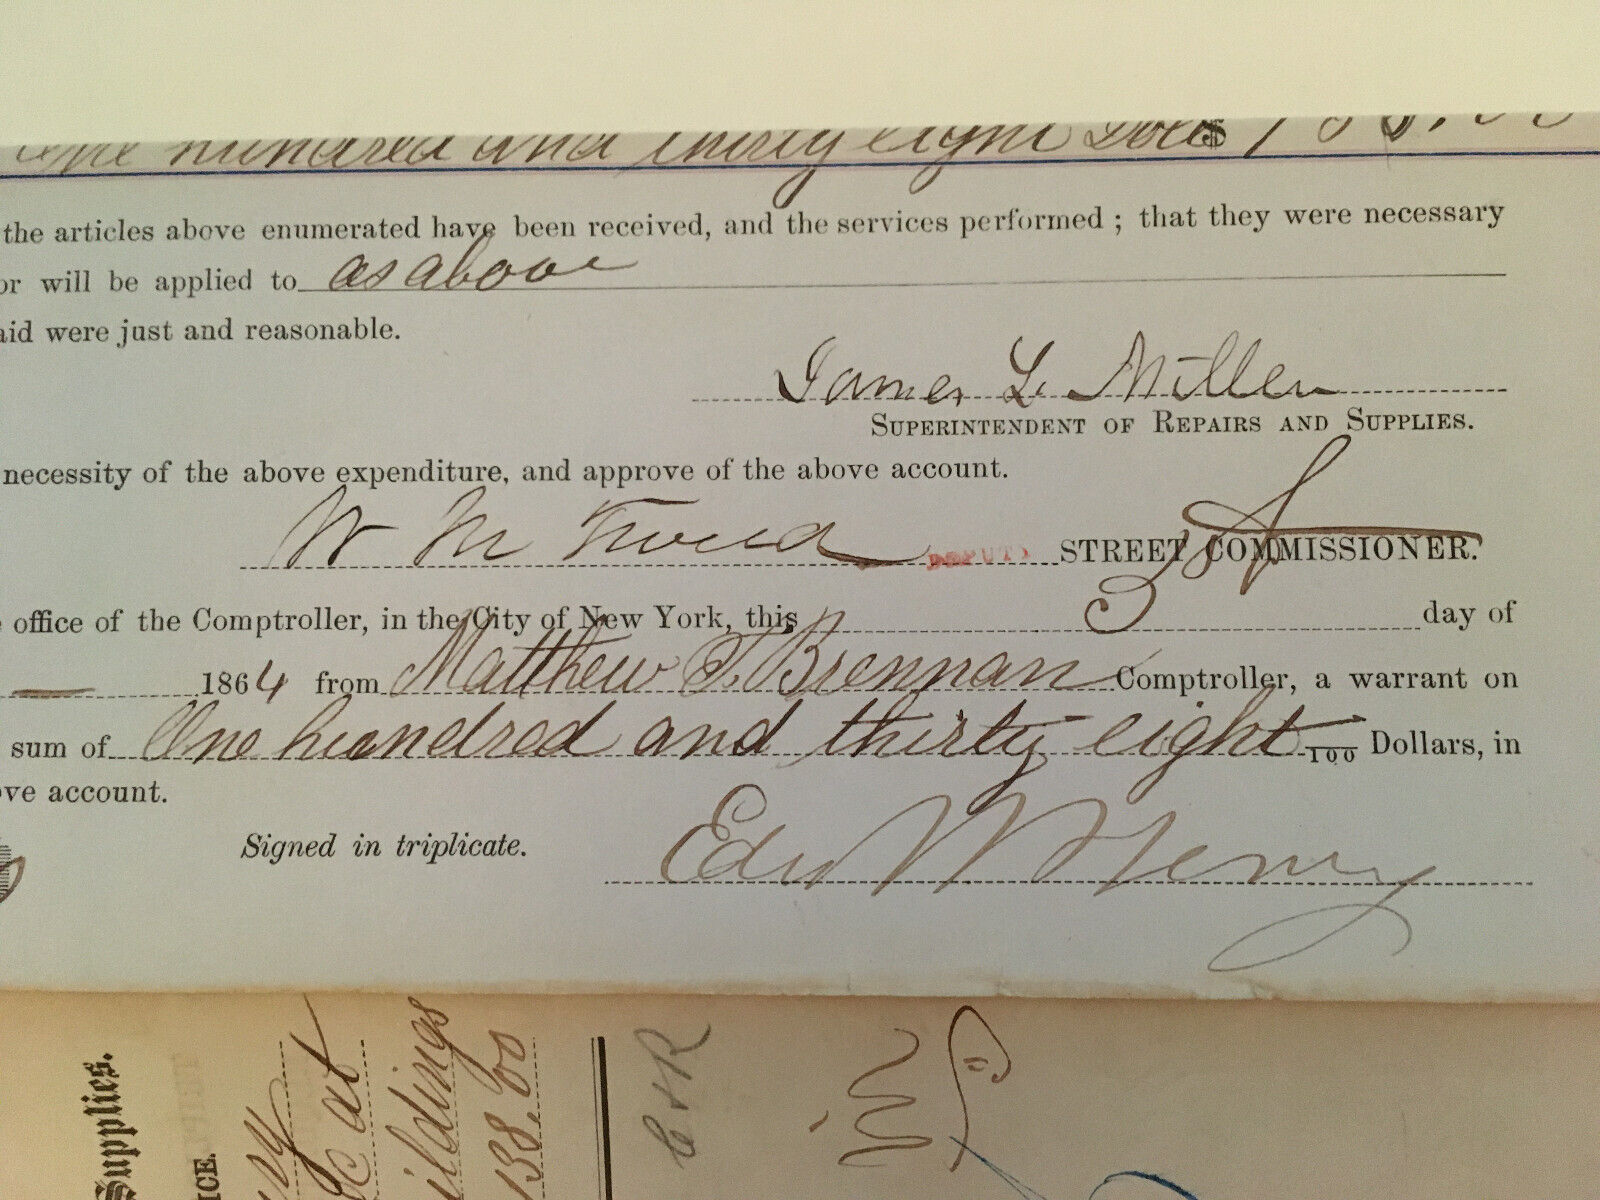 One hundred and thirty eight Doll $ 138.00
the articles above enumerated have been received, and the services performed ; that they were necessary
or will be applied to as above
aid were just and reasonable.
James L. Miller
SUPERINTENDENT OF REPAIRS AND SUPPLIES.
necessity of the above expenditure, and approve of the above account.
W M Tweed DEPUTY STREET COMMISSIONER.
e office of the Comptroller, in the City of New York, this 3 day of
1864 from Matthew T. Brennan Comptroller, a warrant on
sum of One hundred and thirty eight /100 Dollars, in
ve account.
Signed in triplicate.
Edw W Henry
Supplies.
ICE.
ry
at
ildings
138.00